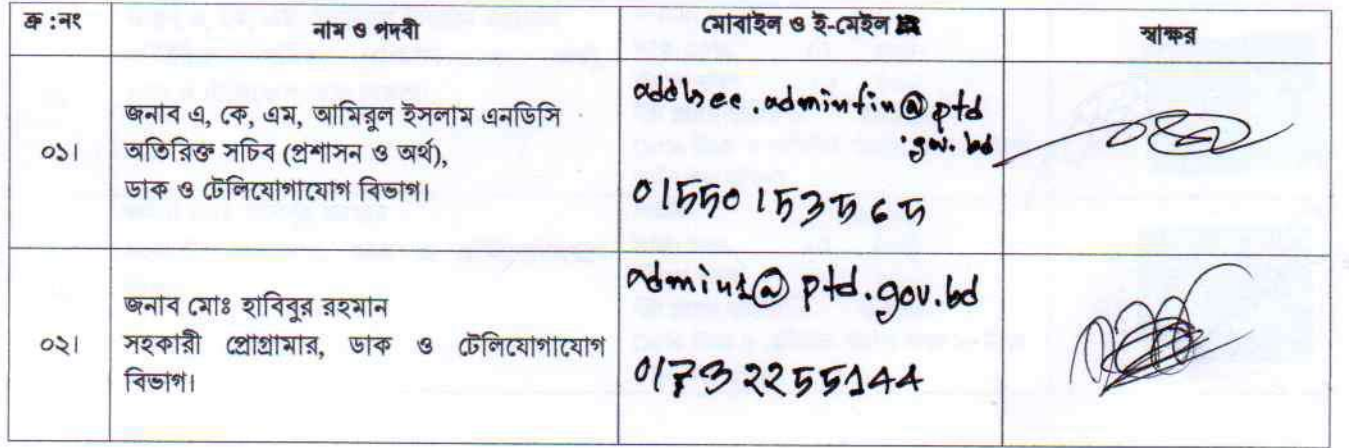 ক্র :নং নাম ও পদবী মোবাইল ও ই-মেইল স্বাক্ষর
০১। জনাব এ, কে, এম, আমিরুল ইসলাম এনডিসি
অতিরিক্ত সচিব (প্রশাসন ও অর্থ),
ডাক ও টেলিযোগাযোগ বিভাগ।
addlsec.adminfin@ptd
.gov.bd
01550153565
০২। জনাব মোঃ হাবিবুর রহমান
সহকারী প্রোগ্রামার, ডাক ও টেলিযোগাযোগ
বিভাগ।
admin1@ptd.gov.bd
01732255144